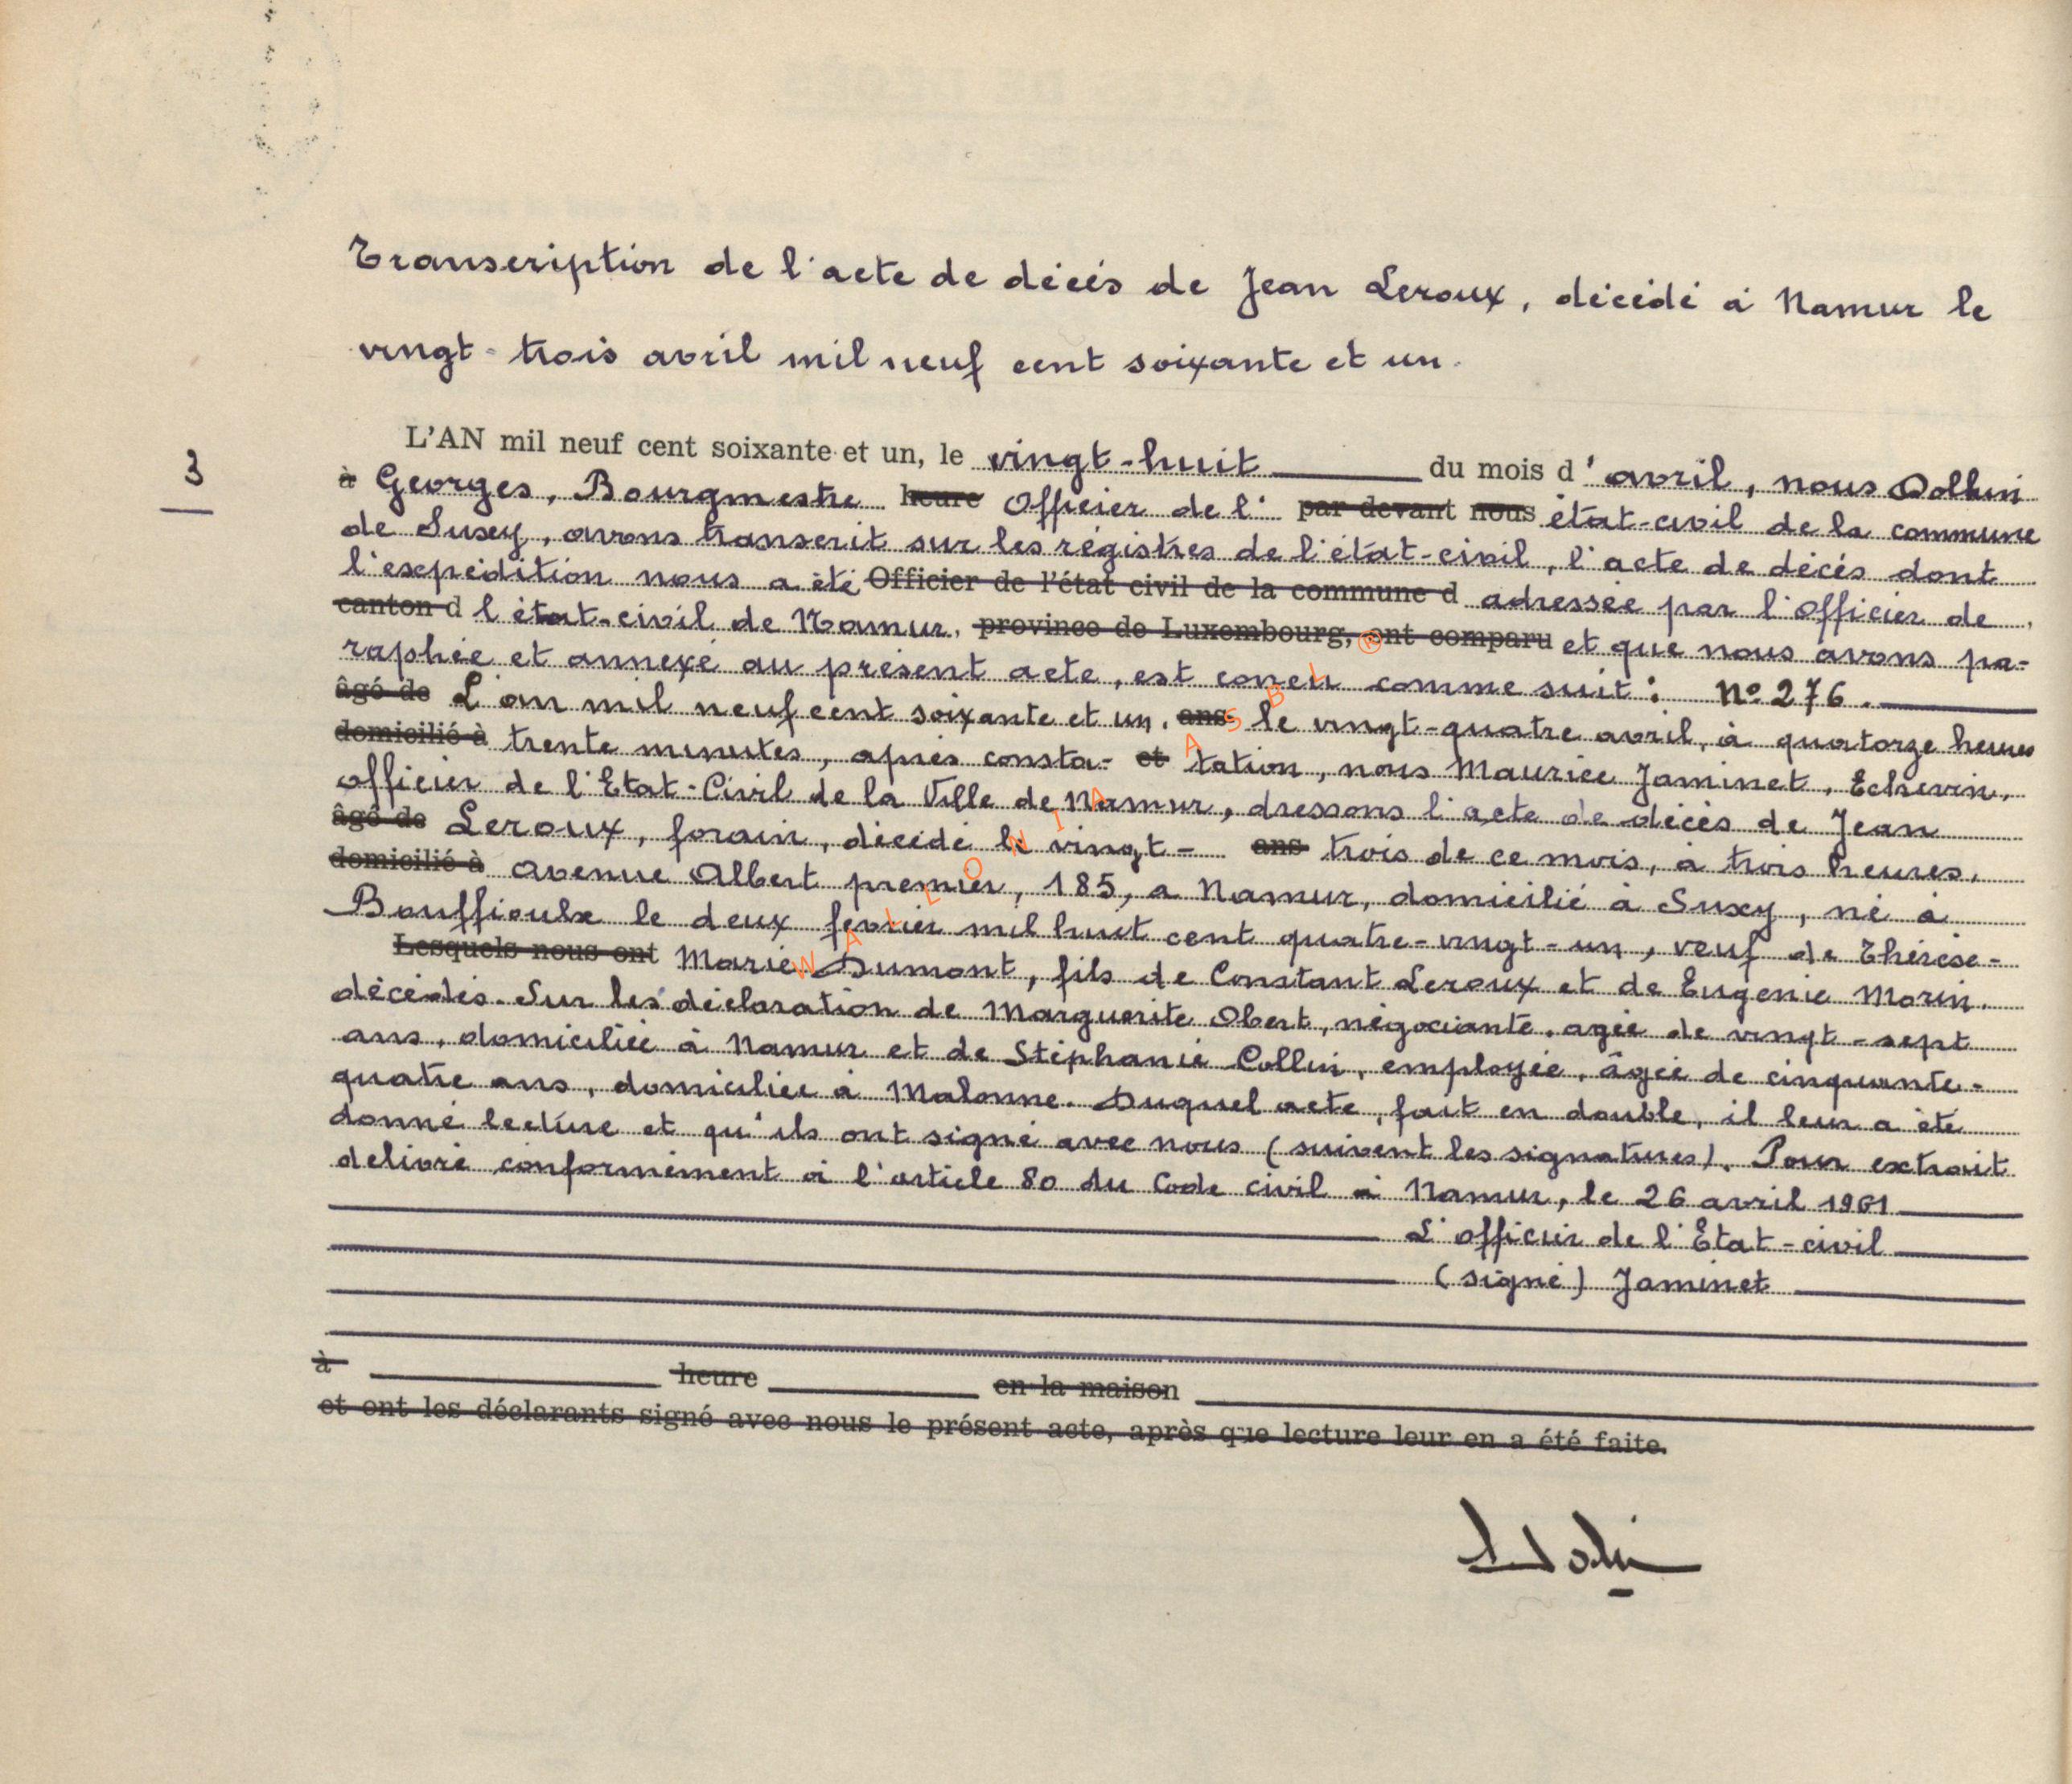 Transcription de l'acte de décès de Jean Leroux, décédé à Namur le
vingt-trois avril mil neuf cent soixante et un.
L'AN mil neuf cent soixante et un, le vingt-huit du mois d'avril, nous Dollin
3
à Georges, Bourgmestre heure Officier de l' par devant nous état-civil de la commune
de Suxy, avons transcrit sur les régistres de l'état-civil, l'acte de décès dont
l'expédition nous a été Officier de l'état civil de la commune d adressée par l'Officier de
canton d l'état-civil de Namur. province de Luxembourg, ont comparu et que nous avons pa-
raphée et annexé au présent acte, est concu comme suit : N° 276.
âgé de L'an mil neuf cent soixante et un, ans le vingt-quatre avril, à quatorze heures
domicilié à trente minutes, après consta- et tation, nous Maurice Jaminet, Echevin,
officier de l'Etat-Civil de la Ville de Namur, dressons l'acte de décès de Jean
âgé de Leroux, forain, décédé le vingt- ans trois de ce mois, à trois heures,
domicilié à avenue Albert premier, 185, a Namur, domicilié à Suxy, né à
Bouffioulx le deux fevrier mil huit cent quatre-vingt-un, veuf de Thérèse-
Lesquels nous ont Marie Dumont, fils de Constant Leroux et de Eugenie Morin.
décédés. Sur les déclaration de Marguerite Obert, négociante, agée de vingt-sept
ans, domiciliée à Namur et de Stéphanie Collin, employée, âgée de cinquante-
quatre ans, domiciliée à Malonne. Duquel acte, fait en double, il leur a été
donné lecture et qu'ils ont signé avec nous (suivent les signatures). Pour extrait
delivré conformément à l'article 80 du Code civil à Namur, le 26 avril 1961
L'officier de l'Etat-civil
(signé) Jaminet
à heure en la maison
et ont les déclarants signé avec nous le présent acte, après que lecture leur en a été faite.
WALLONIA ASBL ®